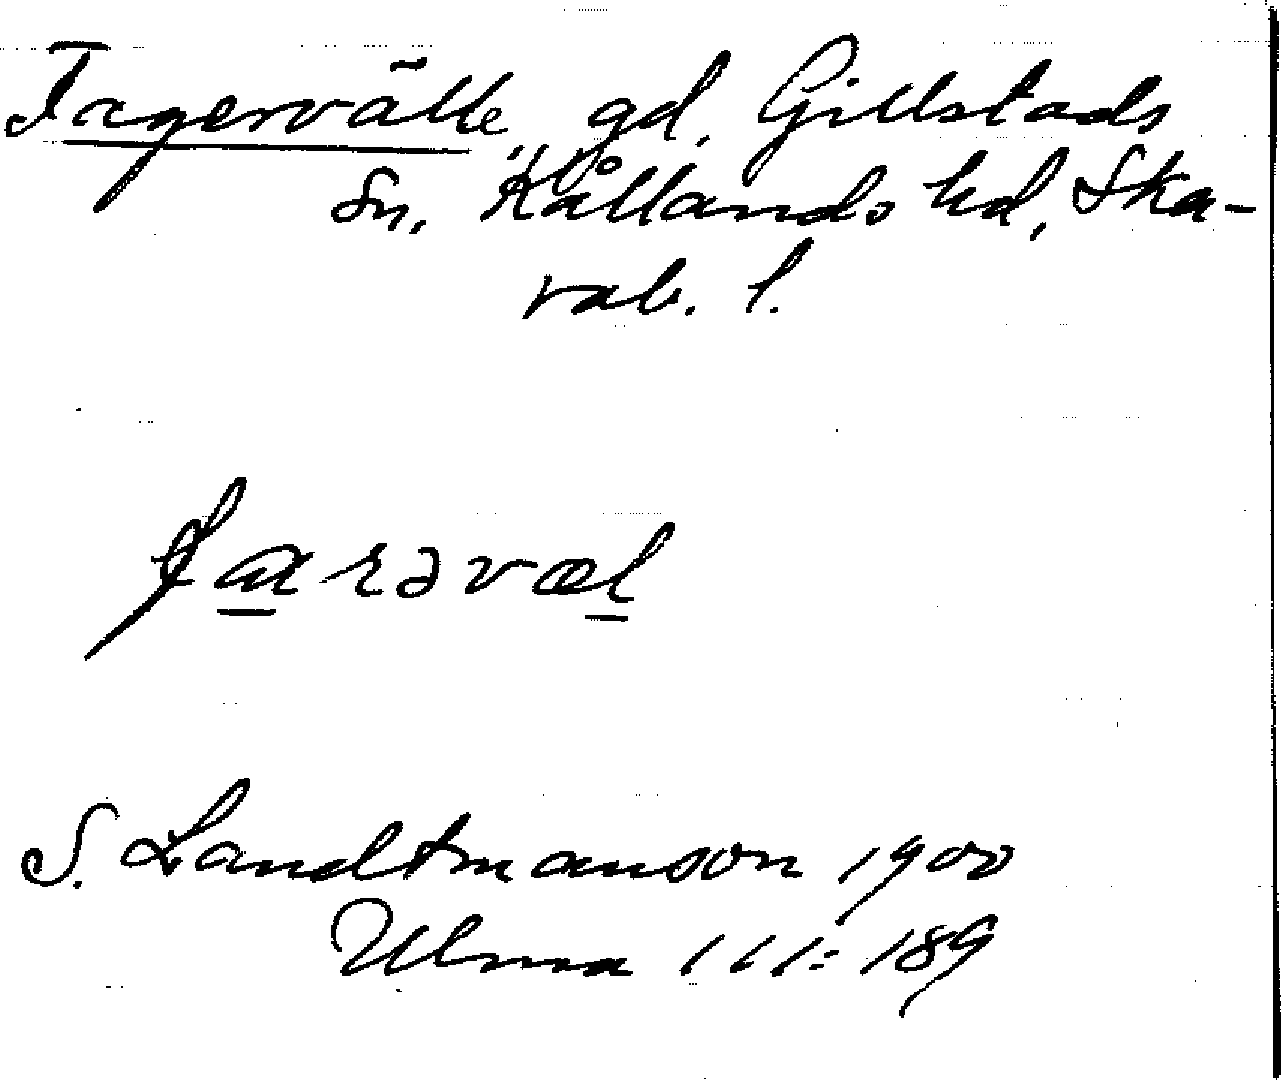 Fagervälle, gd, Gillstads
Sn, Kållands hd, Ska-
rab. l.
faravæl
S. Landtmanson 1900
Ulma 111:189